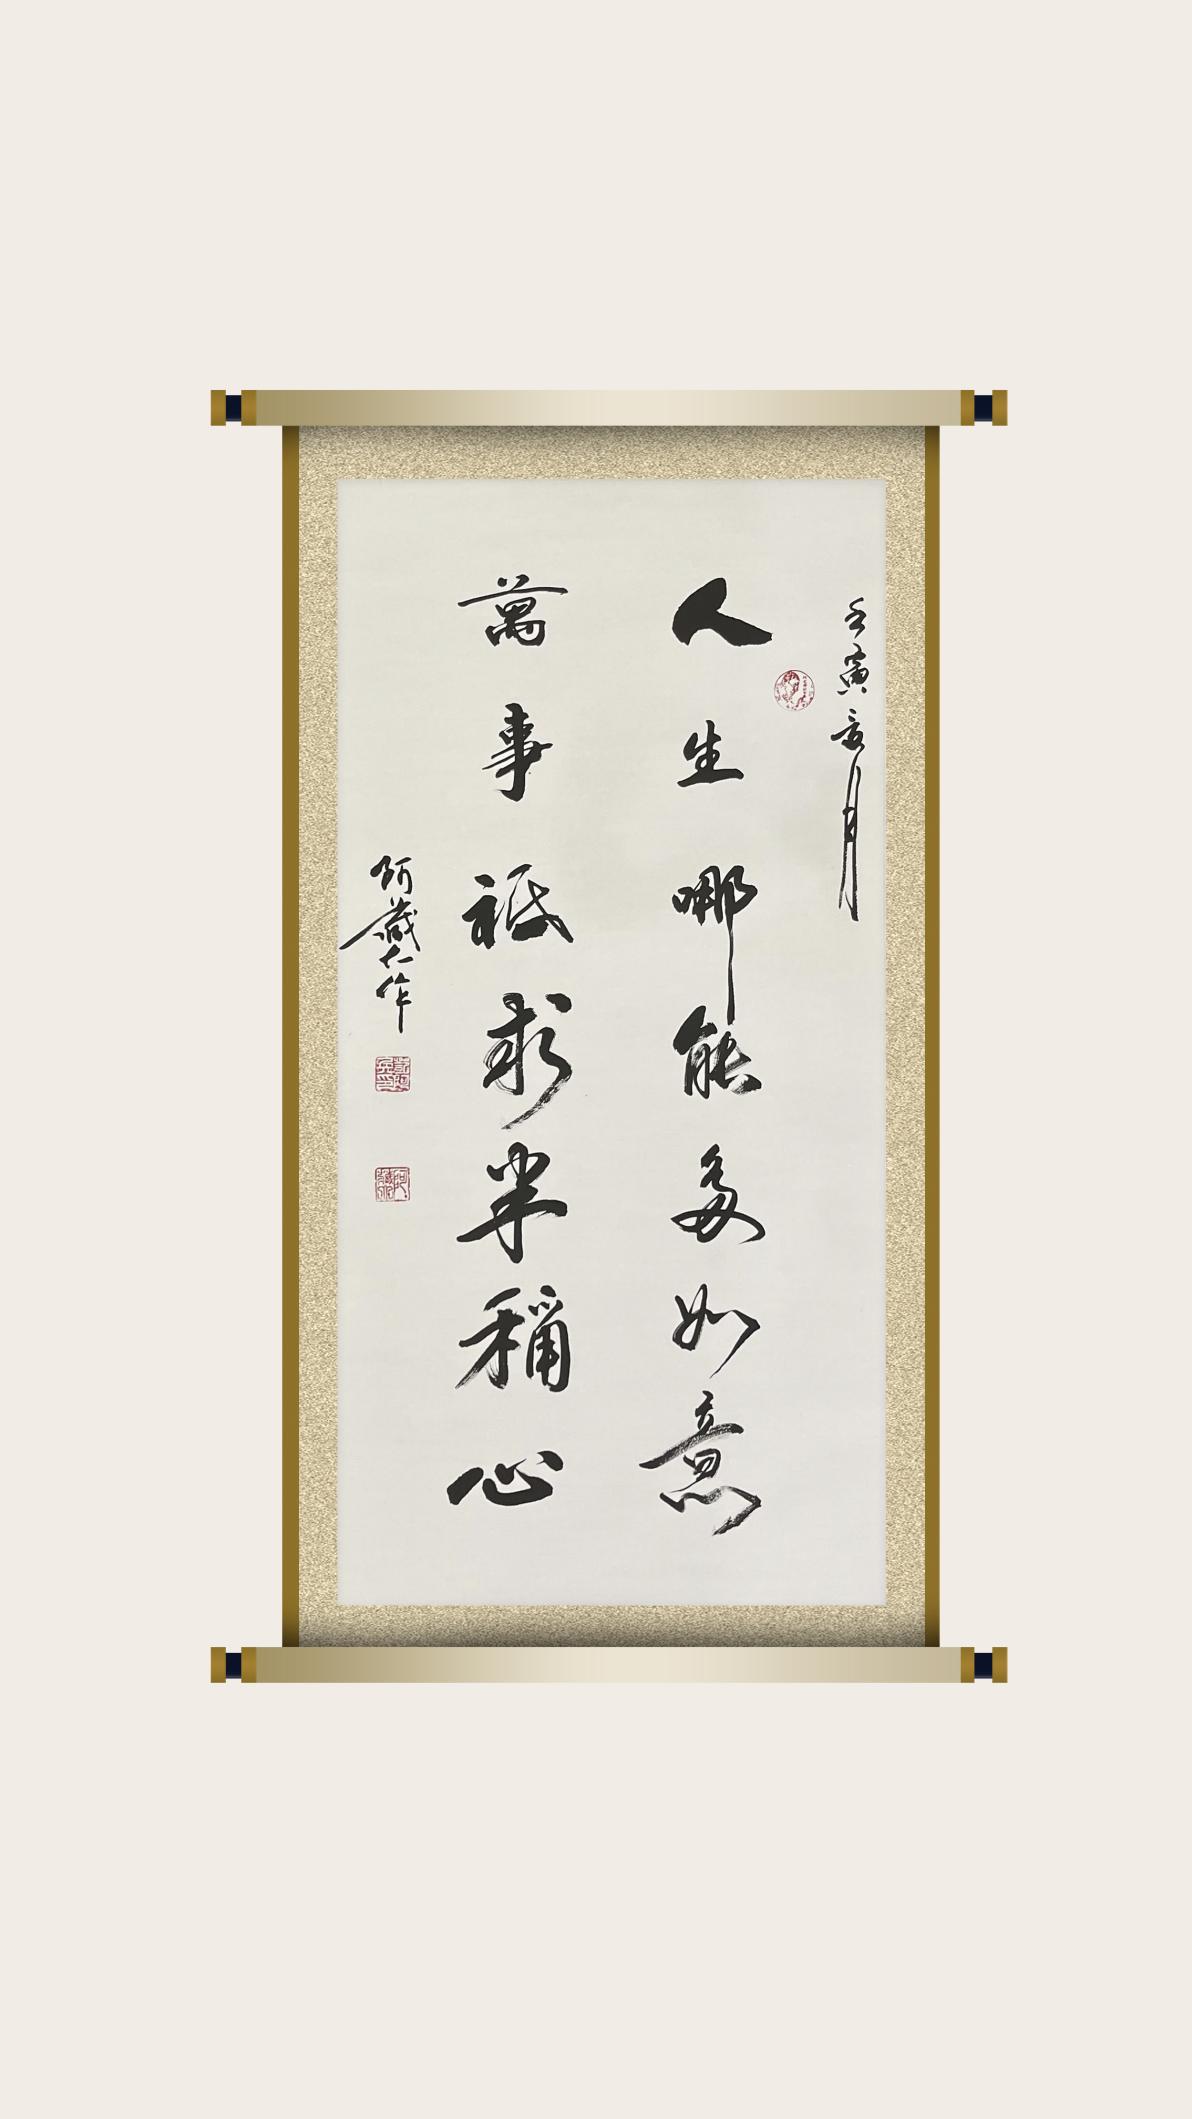 壬寅亥月
人生哪能多如意
萬事祗求半稱心
阿葳仁作